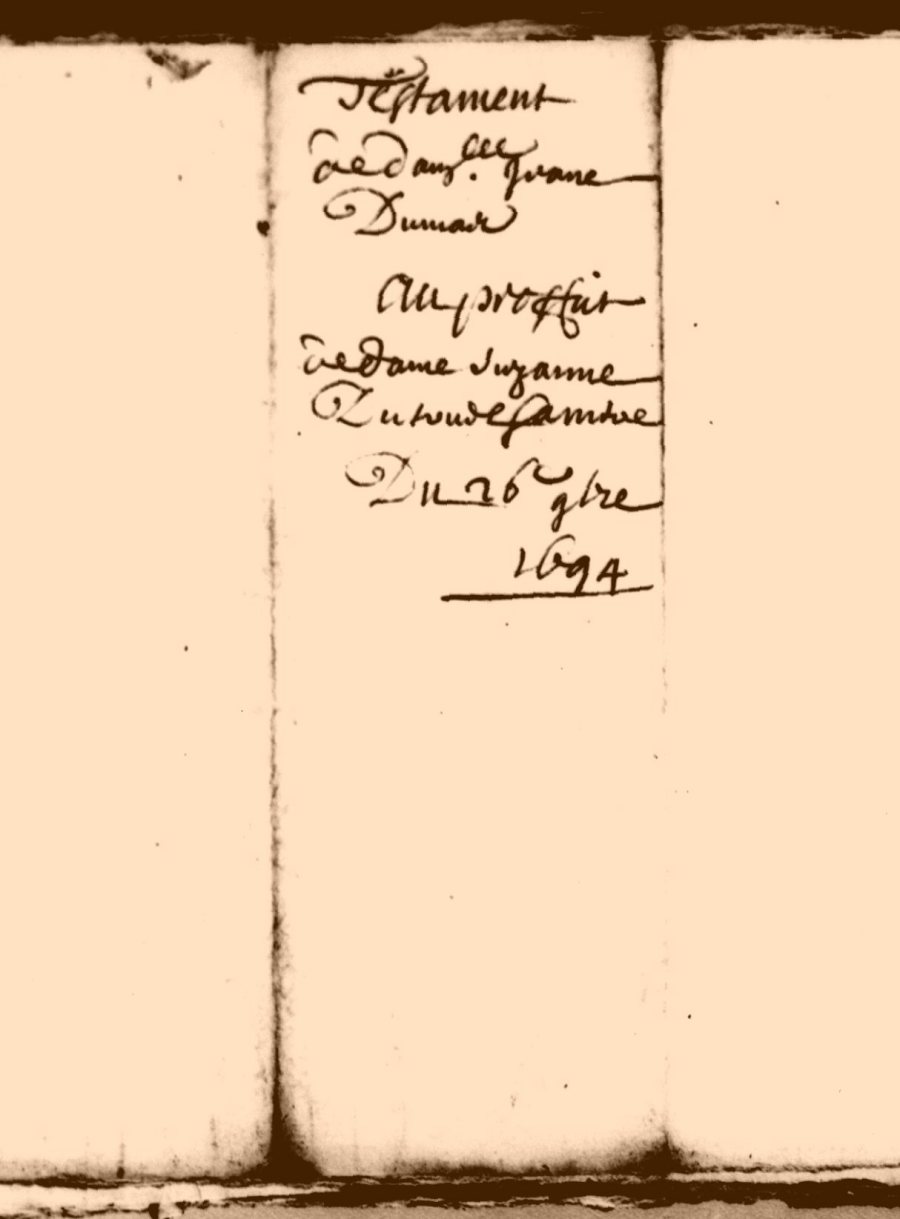 Testament
de dam.lle Jeane
Dumas
Au proffit
de dame Suzanne
Du 26e 9bre
1694